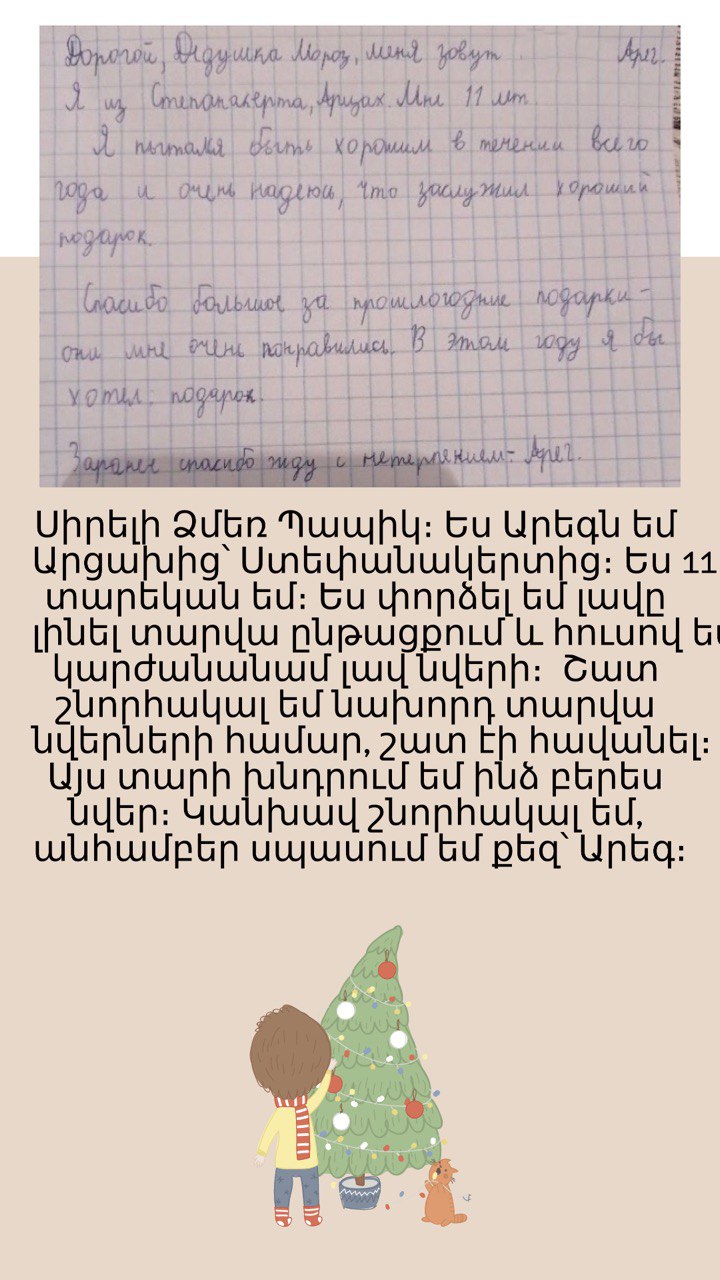 Дорогой, Дедушка Мороз, меня зовут Арег.
Я из Степанакерта, Арцах. Мне 11 лет.
Я пытался быть хорошим в течении всего
года и очень надеюсь, что заслужил хороший
подарок.
Спасибо большое за прошлогодние подарки -
они мне очень понравились. В этом году я бы
хотел: подарок.
Заранее спасибо жду с нетерпением - Арег.
Սիրելի Ձմեռ Պապիկ։ Ես Արեգն եմ
Արցախից՝ Ստեփանակերտից։ Ես 11
տարեկան եմ։ Ես փորձել եմ լավը
լինել տարվա ընթացքում և հուսով եմ
կարժանանամ լավ նվերի։ Շատ
շնորհակալ եմ նախորդ տարվա
նվերների համար, շատ էի հավանել։
Այս տարի խնդրում եմ ինձ բերես
նվեր։ Կանխավ շնորհակալ եմ,
անհամբեր սպասում եմ քեզ՝ Արեգ։